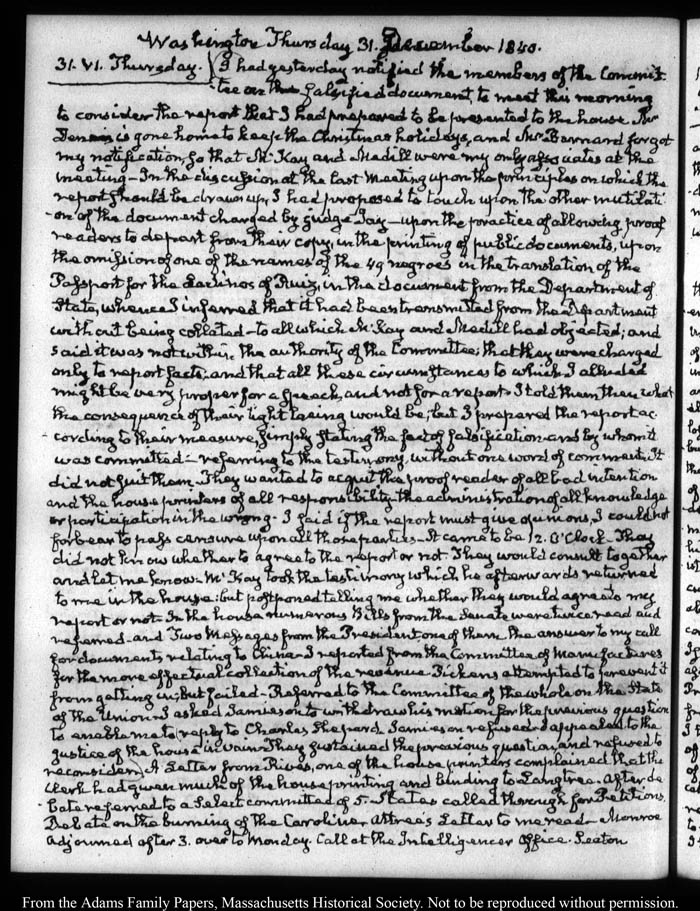 Washington Thursday 31. December 1840.
31. VI. Thursday. I had yesterday notified the members of the Commit-
tee on the falsified document, to meet this morning
to consider the report that I had prepared to be presented to the house. Mr
Dennis is gone home to keep the Christmas holidays, and Mr Barnard forgot
my notification, so that Mc.Kay and Medill were my only associates at the
meeting— In the discussion at the last meeting upon the principles on which the
report should be drawn up, I had proposed to touch upon the other mutilati-
on of the document charged by Judge Jay— upon the practice of allowing proof
readers to depart from their copy, in the printing of public documents, upon
the omission of one of the names of the 49 negroes in the translation of the
Passport for the Ladinos of Ruiz, in the document from the Department of
State, whence I inferred that it had been transmitted from the Department
without being collated— to all which Mc.Kay and Medill had objected; and
said it was not within the authority of the Committee; that they were charged
only to report facts; and that all these circumstances to which I alluded
might be very proper for a speech, and not for a report. I told them then what
the consequence of their tight lacing would be; but I prepared the report ac-
cording to their measure, simply stating the fact of falsification and by whom it
was committed— referring to the testimony, without one word of comment. It
did not suit them. They wanted to acquit the proof reader of all bad intention
and the house printers of all responsibility the administration of all knowledge
or participation in the wrong— I said if the report must give opinions, I could not
forbear to pass censure upon all those parties— It came to be 12. O'Clock— They
did not know whether to agree to the report or not. They would consult together
and let me know. Mc.Kay took the testimony which he afterwards returned
to me in the house; but postponed telling me whether they would agree to my
report or not. In the house numerous Bills from the Senate were twice read and
referred— and Two Messages from the President, one of them the answer to my call
for documents relating to China— I reported from the Committee of Manufactures
for the more effectual collection of the revenue. Pickens attempted to prevent it
from getting in; but failed— Referred to the Committee of the whole on the State
of the Union. I asked Jamieson to withdraw his motion for the previous question
to enable me to reply to Charles Shepard. Jamieson refused. I appealed to the
justice of the house in vain. They sustained the previous question, and refused to
reconsider. A Letter from Rives, one of the house printers complained that the
Clerk had given much of the house printing and binding to Langtree. After de-
bate referred to a Select committee of 5. States called through for Petitions.
Debate on the burning of the Caroline. Attree's Letter to me read— Monroe
Adjourned after 3. over to Monday. Call at the Intelligencer Office. Seaton
From the Adams Family Papers, Massachusetts Historical Society. Not to be reproduced without permission.